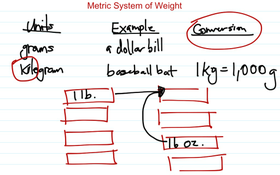 Metric System of Weight
Units Example Conversion
grams a dollar bill
Kilogram baseball bat 1kg = 1,000 g
1 lb.
16 oz.